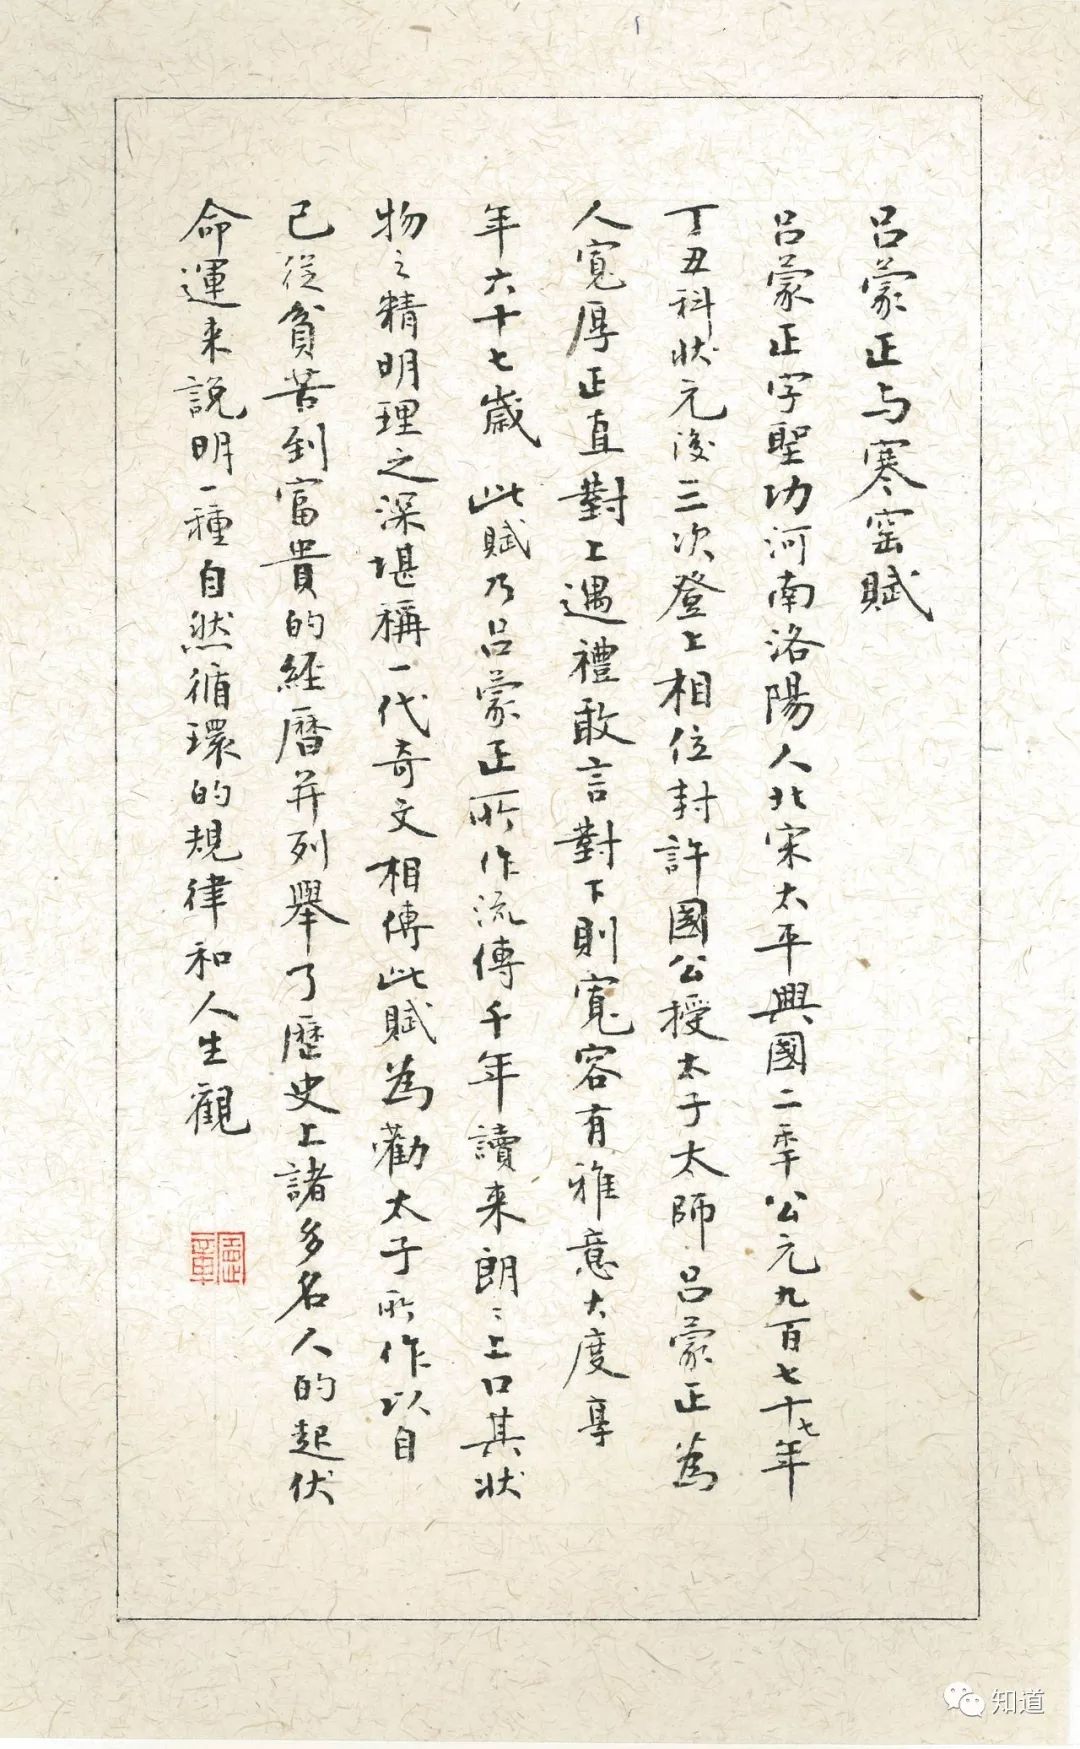 吕蒙正与寒窑賦
吕蒙正字聖功河南洛陽人北宋太平興國二季公元九百七十七年
丁丑科状元後三次登上相位封許國公授太子太師吕蒙正為
人寬厚正直對上遇禮敢言對下則寬容有雅意大度享
年六十七歲此賦乃吕蒙正所作流傳千年讀来朗〻上口其状
物之精明理之深堪稱一代奇文相傳此賦為勸太子所作以自
己從貧苦到富貴的經曆并列舉了歷史上諸多名人的起伏
命運来説明一種自然循環的規律和人生觀
知道